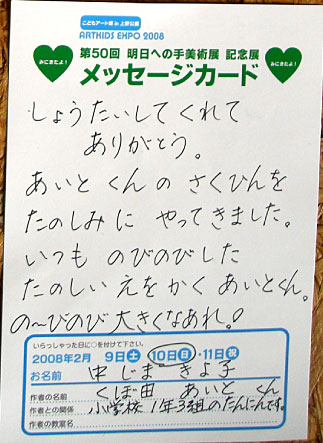 こどもアート展 in 上野公園
ARTKIDS EXPO 2008
みにきたよ!
第50回 明日への手美術展 記念展
みにきたよ!
メッセージカード
しょうたいしてくれて
ありがとう。
あいとくんのさくひんを
たのしみに やってきました。
いつも のびのびした
たのしい えをかく あいとくん。
の〜びのび 大きくなあれ!
いらっしゃった日に○を付けて下さい。
2008年2月 9日土 10日日・11日祝
お名前 中じま きよ子
作者の名前 くぼ田 あいと くん
作者との関係 小学校 1年3組のたんにんです。
作者の教室名